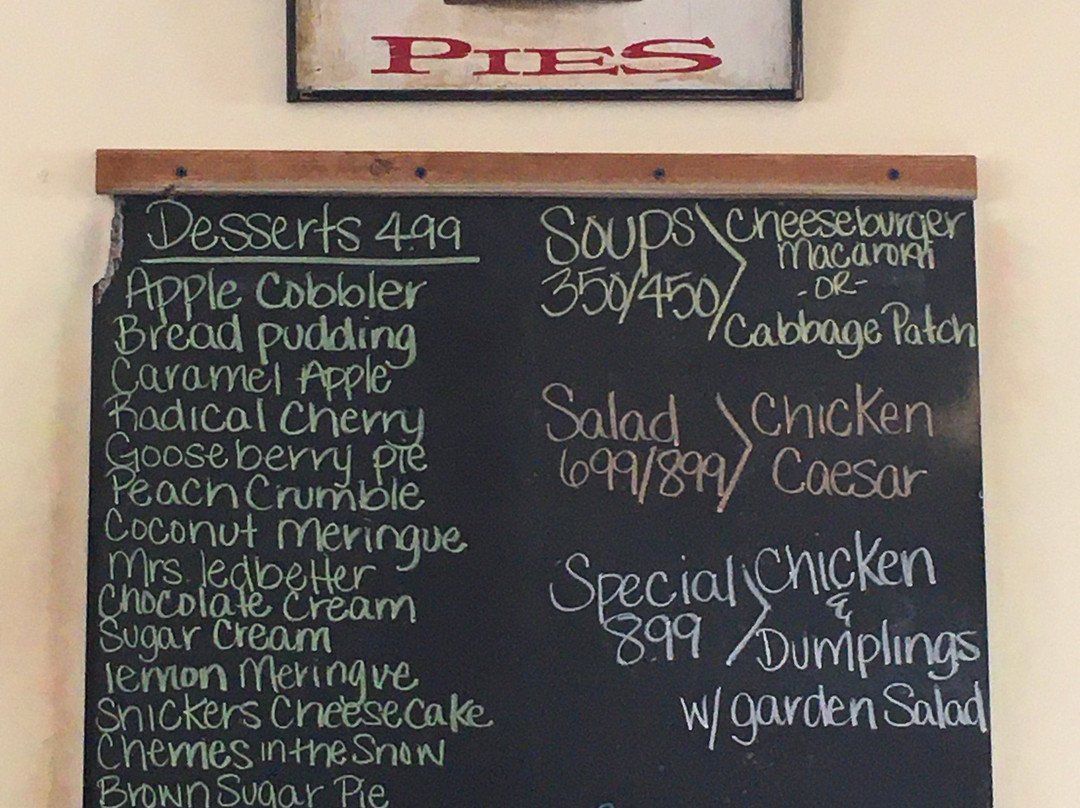 PIES
Desserts 4.99
Apple Cobbler
Bread pudding
Caramel Apple
Radical Cherry
Gooseberry pie
Peach Crumble
Coconut Meringue
Mrs. ledbetter
Chocolate Cream
Sugar Cream
lemon Meringue
Snickers CheeseCake
Cherries in the Snow
Brown Sugar Pie
Soups
350/450
Cheeseburger
Macaroni
-OR-
Cabbage Patch
Salad
699/899
Chicken
Caesar
Special
899
Chicken
&
Dumplings
w/ garden Salad